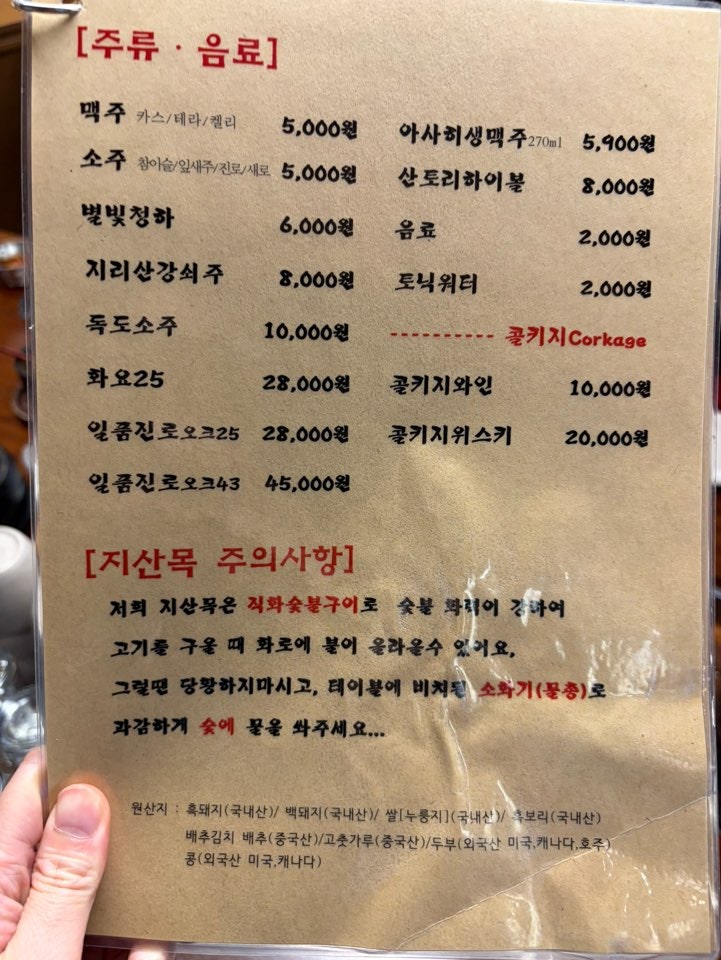 [주류 · 음료]
맥주 카스/테라/켈리 5,000원
소주 참이슬/잎새주/진로/새로 5,000원
별빛청하 6,000원
지리산강쇠주 8,000원
독도소주 10,000원
화요25 28,000원
일품진로오크25 28,000원
일품진로오크43 45,000원
아사히생맥주270ml 5,900원
산토리하이볼 8,000원
음료 2,000원
토닉워터 2,000원
---------- 콜키지Corkage
콜키지와인 10,000원
콜키지위스키 20,000원
[지산목 주의사항]
저희 지산목은 직화숯불구이로 숯불 화력이 강하여
고기를 구울 때 화로에 불이 올라올수 있어요,
그럴땐 당황하지마시고, 테이블에 비치된 소화기(물총)로
과감하게 숯에 물을 쏴주세요...
원산지 : 흑돼지(국내산)/ 백돼지(국내산)/ 쌀[누룽지](국내산)/ 흑보리(국내산)
배추김치 배추(중국산)/고춧가루(중국산)/두부(외국산 미국,캐나다,호주)
콩(외국산 미국,캐나다)